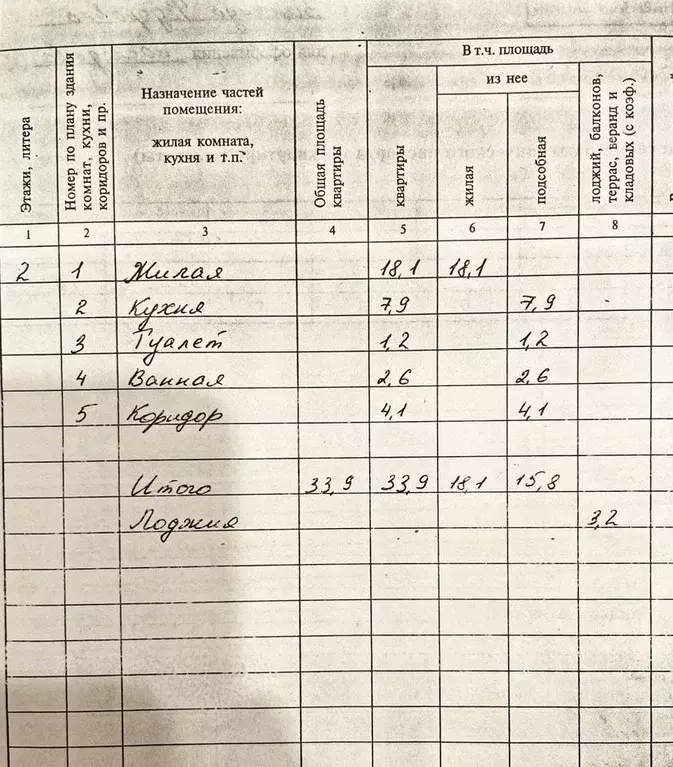 В т.ч. площадь
из нее
Этажи, литера
Номер по плану здания
комнат, кухни,
коридоров и пр.
Назначение частей
помещения:
жилая комната,
кухня и т.п.
Общая площадь
квартиры
квартиры
жилая
подсобная
лоджий, балконов,
террас, веранд и
кладовых (с коэф.)
1 2 3 4 5 6 7 8
2 1 Жилая 18,1 18,1
2 Кухня 7,9 7,9 -
3 Туалет 1,2 1,2
4 Ванная 2,6 2,6
5 Коридор 4,1 4,1
Итого 33,9 33,9 18,1 15,8
Лоджия 3,2